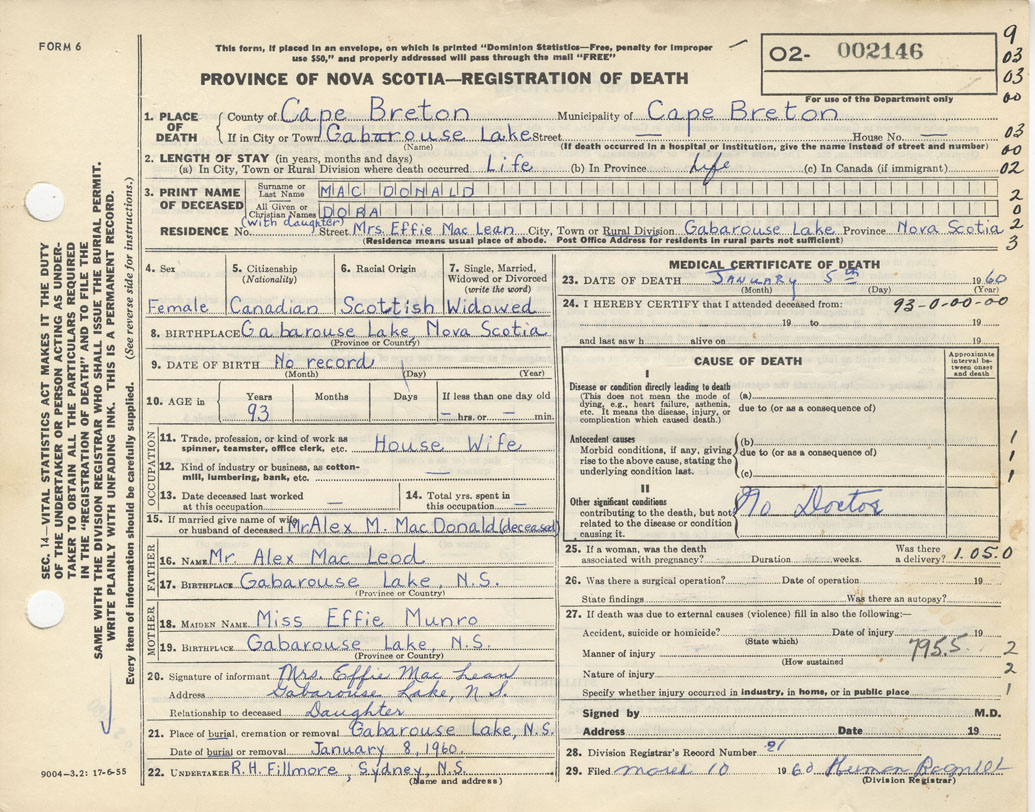 FORM 6
This form, if placed in an envelope, on which is printed "Dominion Statistics—Free, penalty for improper
use $50," and properly addressed will pass through the mail "FREE"
PROVINCE OF NOVA SCOTIA—REGISTRATION OF DEATH
O2- 002146
For use of the Department only
9
03
03
00
03
00
02
2
0
2
3
1. PLACE OF DEATH
County of Cape Breton Municipality of Cape Breton
If in City or Town Gabarouse Lake Street — House No. —
(Name) (If death occurred in a hospital or institution, give the name instead of street and number)
2. LENGTH OF STAY (in years, months and days)
(a) In City, Town or Rural Division where death occurred Life (b) In Province Life (c) In Canada (if immigrant)
3. PRINT NAME OF DECEASED
Surname or Last Name MAC DONALD
All Given or Christian Names DORA
(with daughter)
RESIDENCE No. Street Mrs. Effie Mac Lean City, Town or Rural Division Gabarouse Lake Province Nova Scotia
(Residence means usual place of abode. Post Office Address for residents in rural parts not sufficient)
4. Sex Female
5. Citizenship (Nationality) Canadian
6. Racial Origin Scottish
7. Single, Married, Widowed or Divorced (write the word) Widowed
8. BIRTHPLACE Gabarouse Lake, Nova Scotia
(Province or Country)
9. DATE OF BIRTH No record
(Month) (Day) (Year)
10. AGE in Years 93 Months Days If less than one day old — hrs. or — min.
OCCUPATION
11. Trade, profession, or kind of work as spinner, teamster, office clerk, etc. House Wife
12. Kind of industry or business, as cotton-mill, lumbering, bank, etc. —
13. Date deceased last worked at this occupation —
14. Total yrs. spent in this occupation —
15. If married give name of wife or husband of deceased Mr Alex M. Mac Donald (deceased)
FATHER
16. NAME Mr. Alex Mac Leod
17. BIRTHPLACE Gabarouse Lake, N.S.
(Province or Country)
MOTHER
18. MAIDEN NAME Miss Effie Munro
19. BIRTHPLACE Gabarouse Lake, N.S.
(Province or Country)
20. Signature of informant Mrs. Effie Mac Lean
Address Gabarouse Lake, N.S.
Relationship to deceased Daughter
21. Place of burial, cremation or removal Gabarouse Lake, N.S.
Date of burial or removal January 8, 1960.
22. UNDERTAKER R.H. Fillmore, Sydney, N.S.
(Name and address)
MEDICAL CERTIFICATE OF DEATH
23. DATE OF DEATH January 5th 1960
(Month) (Day) (Year)
24. I HEREBY CERTIFY that I attended deceased from: 93-0-00-00
19 to
and last saw h alive on 19
CAUSE OF DEATH
Approximate interval between onset and death
I
Disease or condition directly leading to death
(This does not mean the mode of dying, e.g., heart failure, asthenia, etc. It means the disease, injury, or complication which caused death.)
(a)
due to (or as a consequence of)
Antecedent causes
Morbid conditions, if any, giving rise to the above cause, stating the underlying condition last.
(b)
due to (or as a consequence of)
(c)
1
1
1
II
Other significant conditions
contributing to the death, but not related to the disease or condition causing it.
No Doctor
25. If a woman, was the death associated with pregnancy? Duration weeks. Was there a delivery? 1.05.0
26. Was there a surgical operation? Date of operation 19
State findings Was there an autopsy?
27. If death was due to external causes (violence) fill in also the following:—
Accident, suicide or homicide? Date of injury 19
(State which)
Manner of injury 795.5 2
(How sustained)
Nature of injury 2
Specify whether injury occurred in industry, in home, or in public place 1
Signed by M.D.
Address Date 19
28. Division Registrar's Record Number 21
29. Filed March 10 1960
(Division Registrar)
SEC. 14—VITAL STATISTICS ACT MAKES IT THE DUTY
OF THE UNDERTAKER OR PERSON ACTING AS UNDER-
TAKER TO OBTAIN ALL THE PARTICULARS REQUIRED
IN THE "REGISTRATION OF DEATH" AND TO FILE THE
SAME WITH THE DIVISION REGISTRAR WHO SHALL ISSUE THE BURIAL PERMIT.
WRITE PLAINLY WITH UNFADING INK. THIS IS A PERMANENT RECORD.
Every item of information should be carefully supplied. (See reverse side for instructions.)
9004—3.2: 17-6-55